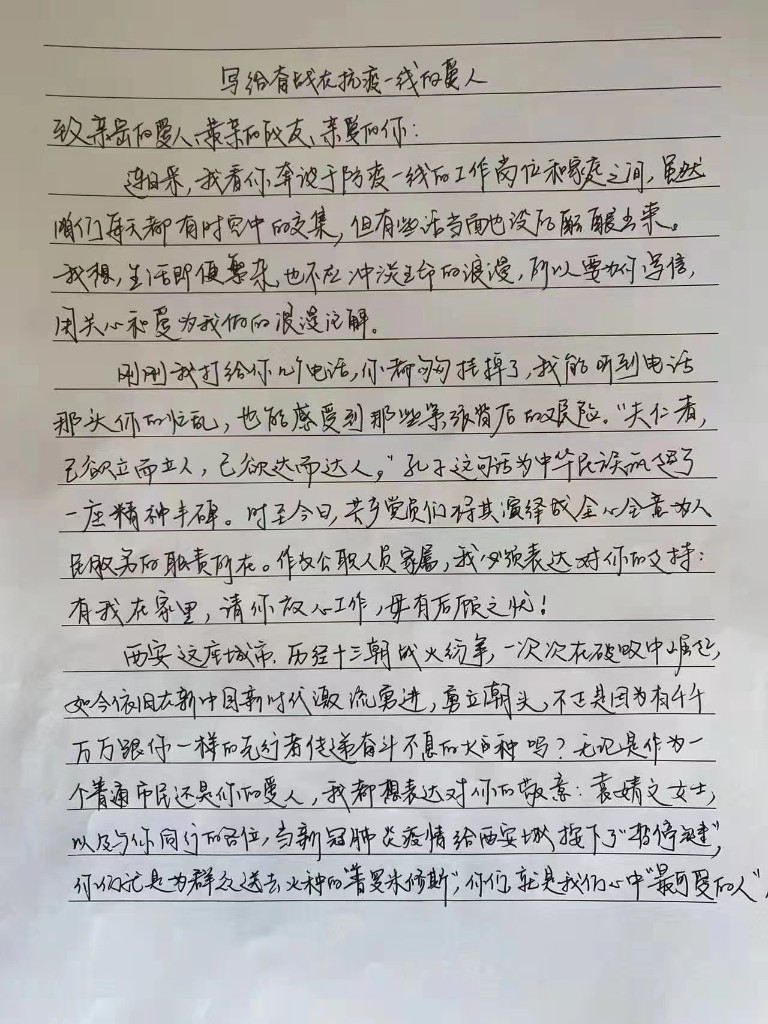 写给奋战在抗疫一线的爱人
致亲密的爱人、最亲的战友、亲爱的你：
连日来，我看你奔波于防疫一线的工作岗位和家庭之间，虽然
咱们每天都有时空中的交集，但有些话当面也没能酝酿出来。
我想，生活即便繁杂，也不应冲淡生命的浪漫，所以要为你写信，
用关心和爱为我们的浪漫注解。
刚刚我打给你几个电话，你都匆匆挂掉了，我能听到电话
那头你的忙乱，也能感受到那些紧张背后的艰险。“夫仁者，
己欲立而立人，己欲达而达人。”孔子这句话为中华民族筑起了
一座精神丰碑。时至今日，共产党员们将其演绎成全心全意为人
民服务的职责所在。作为公职人员家属，我必须表达对你的支持：
有我在家里，请你放心工作，毋有后顾之忧！
西安这座城市，历经十三朝战火纷争，一次次在破败中崛起，
如今依旧在新中国新时代激流勇进，勇立潮头，不正是因为有千千
万万跟你一样的先行者传递奋斗不息的火种吗？无论是作为一
个普通市民还是你的爱人，我都想表达对你的敬意：袁婧文女士，
以及与你同行的各位，当新冠肺炎疫情给西安城按下了“暂停键”，
你们就是为群众送去火种的“普罗米修斯”，你们就是我们心中“最可爱的人”，